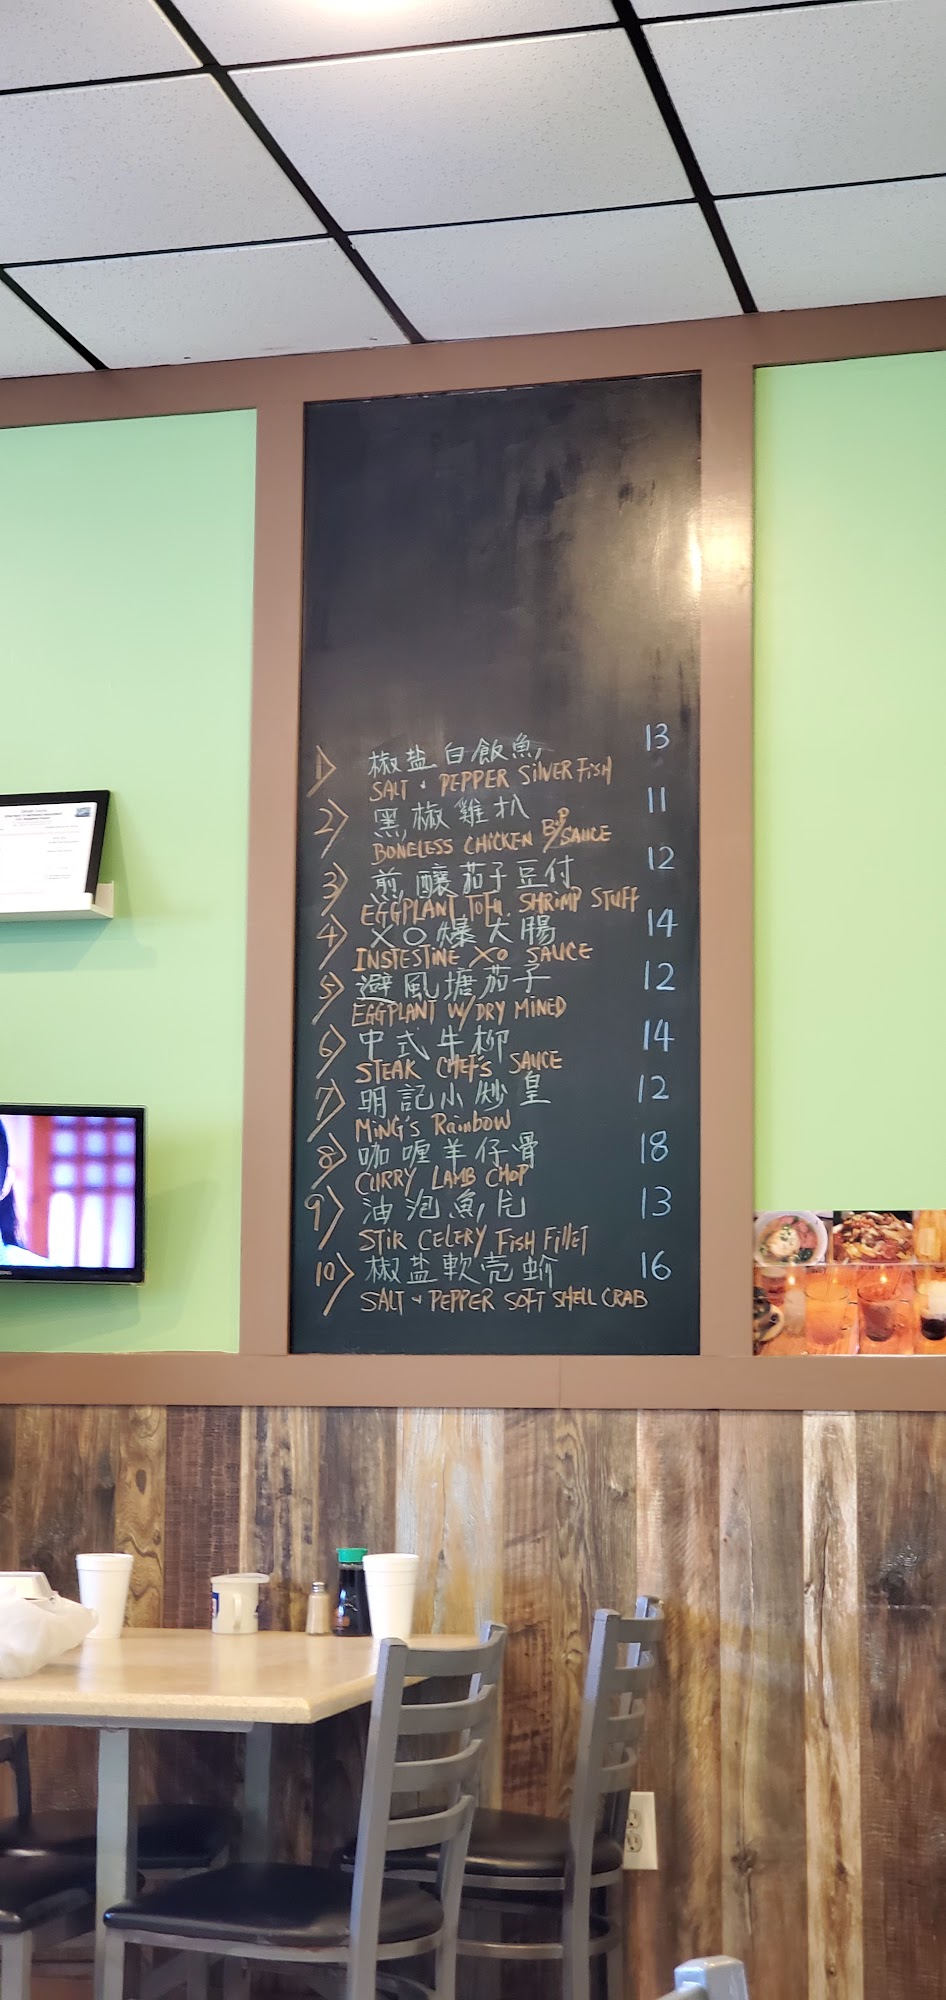 1> 椒盐白飯魚 13
SALT & PEPPER SILVER FISH
2> 黑椒雞扒 11
BONELESS CHICKEN B/P SAUCE
3> 煎釀茄子豆付 12
EGGPLANT TOFU SHRIMP STUFF
4> XO爆大腸 14
INSTESTINE XO SAUCE
5> 避風塘茄子 12
EGGPLANT W/ DRY MINED
6> 中式牛柳 14
STEAK CHEF'S SAUCE
7> 明記小炒皇 12
MiNG'S Rainbow
8> 咖喱羊仔骨 18
CURRY LAMB CHOP
9> 油泡魚片 13
STIR CELERY FISH FILLET
10> 椒盐軟壳蚧 16
SALT & PEPPER SOFT SHELL CRAB